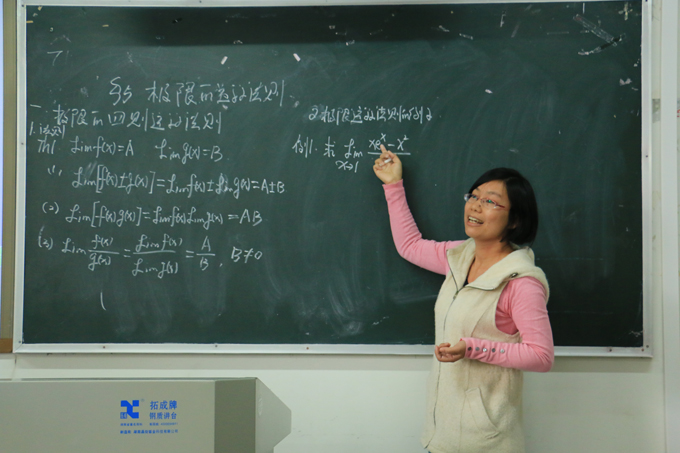 §5 极限的运算法则
一 极限的四则运算法则
1. 法则
Th1 Lim f(x)=A Lim g(x)=B
(1) Lim[f(x)±g(x)]=Lim f(x)±Lim g(x)=A±B
(2) Lim[f(x)g(x)]=Lim f(x)Lim g(x)=AB
(3) Lim f(x)/g(x) = Lim f(x)/Lim g(x) = A/B, B≠0
2.极限运算法则的例子
例1. 求 Lim x→1 xeˣ-x²
拓成牌
钢质讲台